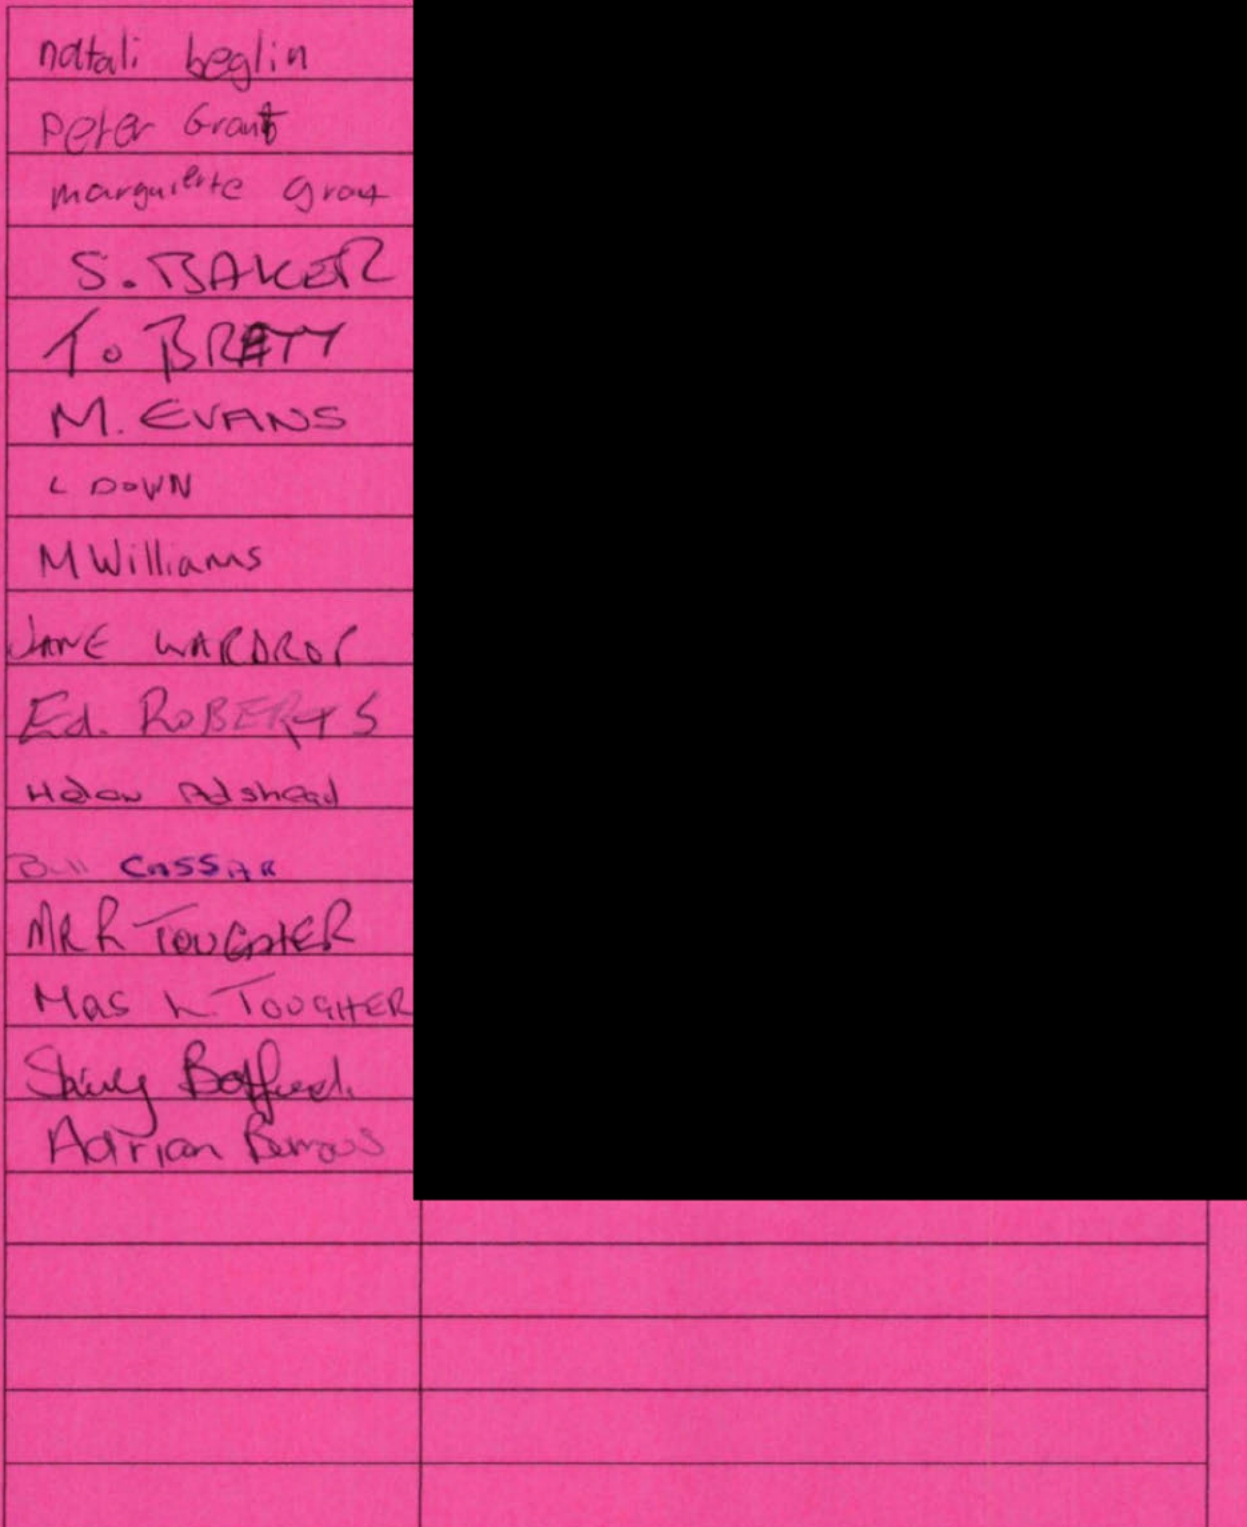 natali beglin
Peter Grant
marguierte Grant
S. BAKER
T. BRETT
M. EVANS
L DOWN
M Williams
JANE WARDROP
Ed. ROBERTS
Helen Adshead
Bill CASSAR
MR R TOUGHER
Mrs L TOUGHER
Shirley
Adrian